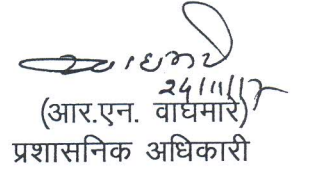 24/11/17
(आर.एन. वाघमारे)
प्रशासनिक अधिकारी